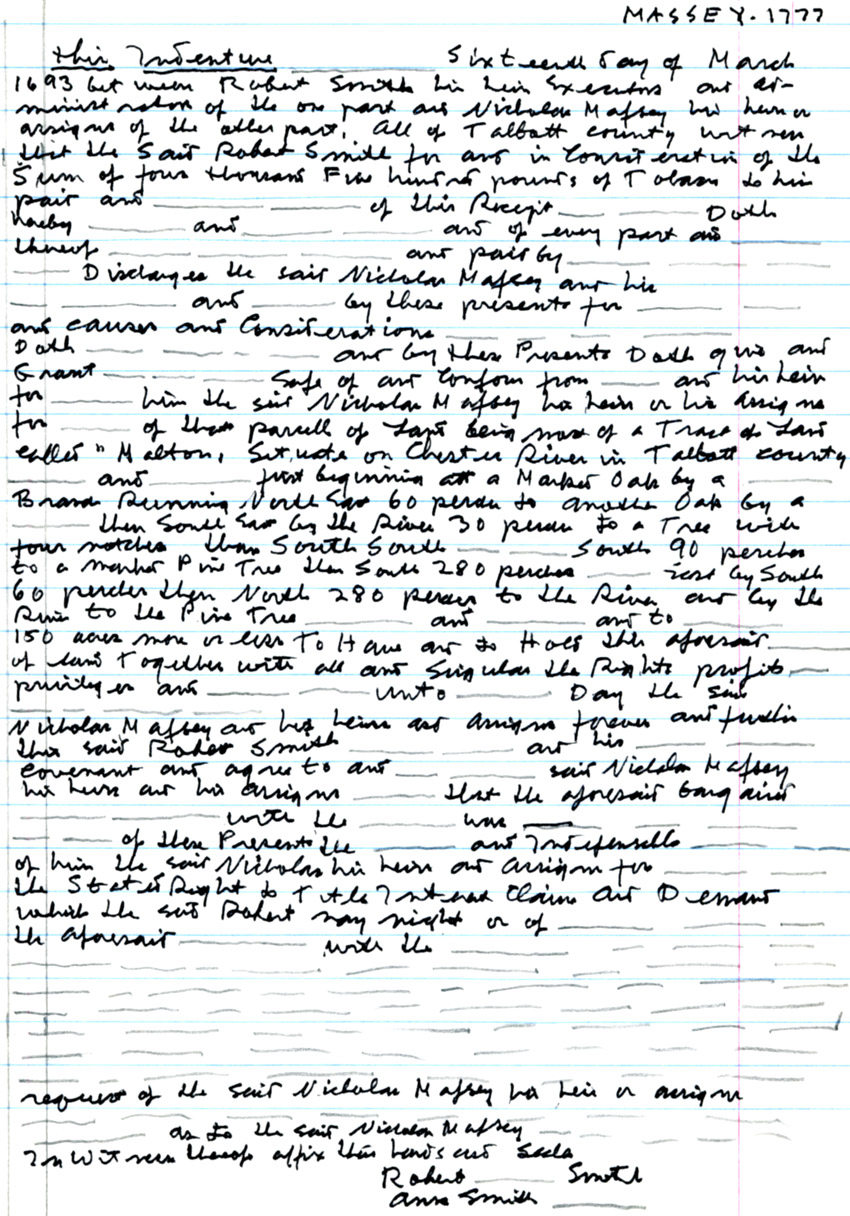 MASSEY. 1777
This Indenture ______ Sixteenth day of March
1693 between Robert Smith his heirs Executors and ad-
ministrators of the one part and Nicholas Mafsey his heirs or
assigns of the other part, All of Talbott county witness
that the said Robert Smith for and in Consideration of the
Sum of four thousand Five hundred pounds of Tobacco to him
paid and ______ of this Receipt ______ Doth
hereby ______ and ______ and of every part and ______
thereof ______ and paid by ______
______ Discharges the said Nicholas Mafsey and his
______ and ______ by these presents for ______
and causes and Considerations ______
Doth ______ and by these Presents Doth give and
Grant ______ Safe of and Confirm from ______ and his heirs
for ______ him the said Nicholas Mafsey his heirs or his assigns
for ______ of that parcell of Land being most of a Tract of Land
called "Malton, Situate on Chester River in Talbott county
______ and ______ first beginning at a Marked Oak by a ______
Brand Running North East 60 perches to another Oak by a
______ then South East by the River 30 perches to a Tree with
four notches then South South ______ South 90 perches
to a marked Pine Tree then South 280 perches ______ East by South
60 perches then North 280 perches to the River and by the
River to the Pine Tree ______ and ______ and to ______
150 acres more or less To Have and to Hold the aforesaid ______
of land Together with all and Singular the Rights profits ______
privileges and ______ unto ______ Day the said
Nicholas Mafsey and his heirs and assigns forever and further
this said Robert Smith ______ and his ______
covenant and agree to and ______ said Nicholas Mafsey
his heirs and his assigns ______ that the aforesaid bargained
______ with the ______ was ______
______ of these Presents the ______ and Indefensible ______
of him the said Nicholas his heirs and assigns for ______
the State Right to Title Interest Claim and Demand
which the said Robert may might or of ______
the aforesaid ______ with the ______
request of the said Nicholas Mafsey his heirs or assigns
______ as to the said Nicholas Mafsey ______
In Witness thereof affix their hands and Seals
Robert ______ Smith
Anne Smith ______